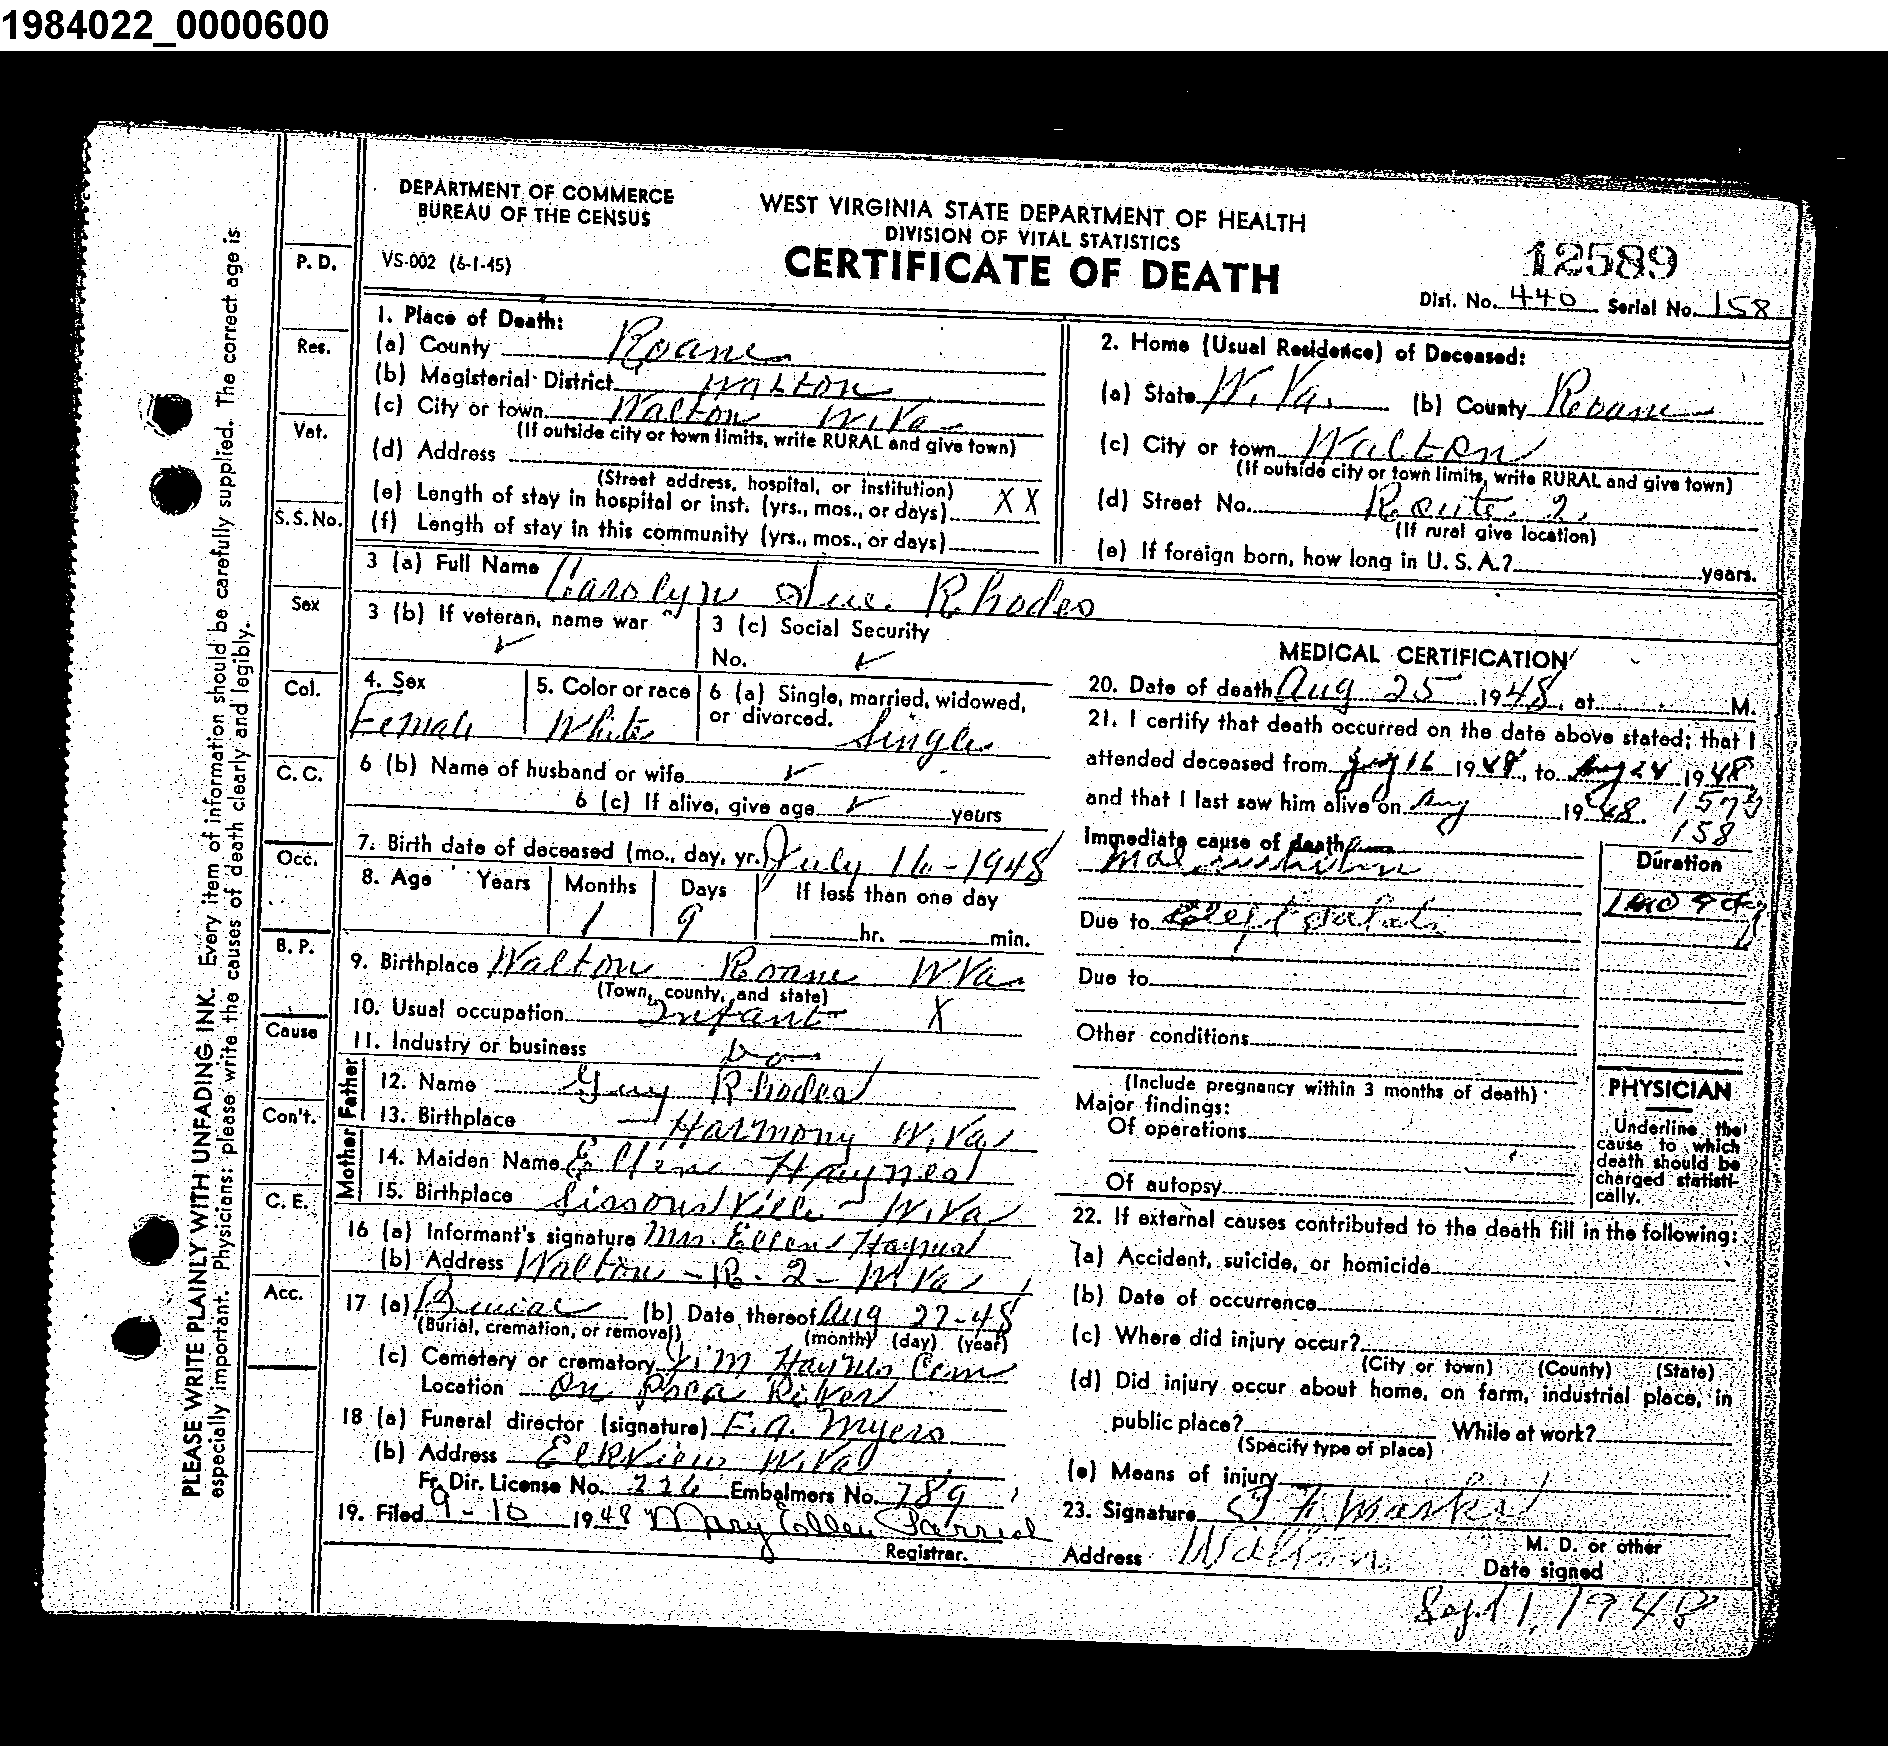 1984022_0000600
DEPARTMENT OF COMMERCE
BUREAU OF THE CENSUS
WEST VIRGINIA STATE DEPARTMENT OF HEALTH
DIVISION OF VITAL STATISTICS
VS-002 (6-1-45)
CERTIFICATE OF DEATH
12589
Dist. No. 440 Serial No. 158
PLEASE WRITE PLAINLY WITH UNFADING INK. Every item of information should be carefully supplied. The correct age is
especially important. Physicians: please write the causes of death clearly and legibly.
P. D.
Res.
Vet.
S.S. No.
Sex
Col.
C. C.
Occ.
B. P.
Cause
Con't.
C. E.
Acc.
1. Place of Death:
(a) County Roane
(b) Magisterial District Walton
(c) City or town Walton W.Va
(If outside city or town limits, write RURAL and give town)
(d) Address
(Street address, hospital, or institution)
(e) Length of stay in hospital or inst. (yrs., mos., or days) X X
(f) Length of stay in this community (yrs., mos., or days)
2. Home (Usual Residence) of Deceased:
(a) State W. Va. (b) County Roane
(c) City or town Walton
(If outside city or town limits, write RURAL and give town)
(d) Street No. Route 2.
(If rural give location)
(e) If foreign born, how long in U. S. A.? years.
3 (a) Full Name Carolyn Sue Rhodes
3 (b) If veteran, name war ✓
3 (c) Social Security
No. ✓
4. Sex
Female
5. Color or race
White
6 (a) Single, married, widowed,
or divorced. Single
6 (b) Name of husband or wife ✓
6 (c) If alive, give age ✓ years
7. Birth date of deceased (mo., day, yr.) July 16-1948
8. Age Years Months Days If less than one day
1 9 hr. min.
9. Birthplace Walton Roane W Va
(Town, county, and state)
10. Usual occupation Infant X
11. Industry or business
Father
12. Name Guy Rhodes
13. Birthplace Harmony W.Va
Mother
14. Maiden Name Haynes
15. Birthplace Sissonville - W.Va
16 (a) Informant's signature Mrs Ellen Haynes
(b) Address Walton - R. 2 - W Va
17 (a) Burial (b) Date thereof Aug 27-48
(Burial, cremation, or removal) (month) (day) (year)
(c) Cemetery or crematory Jim Haynes Cem
Location On Poca River
18 (a) Funeral director (signature) F.A. Myers
(b) Address Elkview W.Va
Fr. Dir. License No. 226 Embalmers No. 789
19. Filed 9-10 1948 Mary Ellen
Registrar.
MEDICAL CERTIFICATION
20. Date of death Aug 25 1948, at M.
21. I certify that death occurred on the date above stated; that I
attended deceased from 16 1948, to Aug 24 1948
and that I last saw him alive on Aug 1948.
158
Immediate cause of death
Malnutrition
Duration
1 mo 9 dy
Due to Cleft Palate
Due to
Other conditions
(Include pregnancy within 3 months of death)
Major findings:
Of operations
Of autopsy
PHYSICIAN
Underline the
cause to which
death should be
charged statisti-
cally.
22. If external causes contributed to the death fill in the following:
(a) Accident, suicide, or homicide
(b) Date of occurrence
(c) Where did injury occur?
(City or town) (County) (State)
(d) Did injury occur about home, on farm, industrial place, in
public place? While at work?
(Specify type of place)
(e) Means of injury
23. Signature
M. D. or other
Address Walton
Date signed
Sept 1, 1948